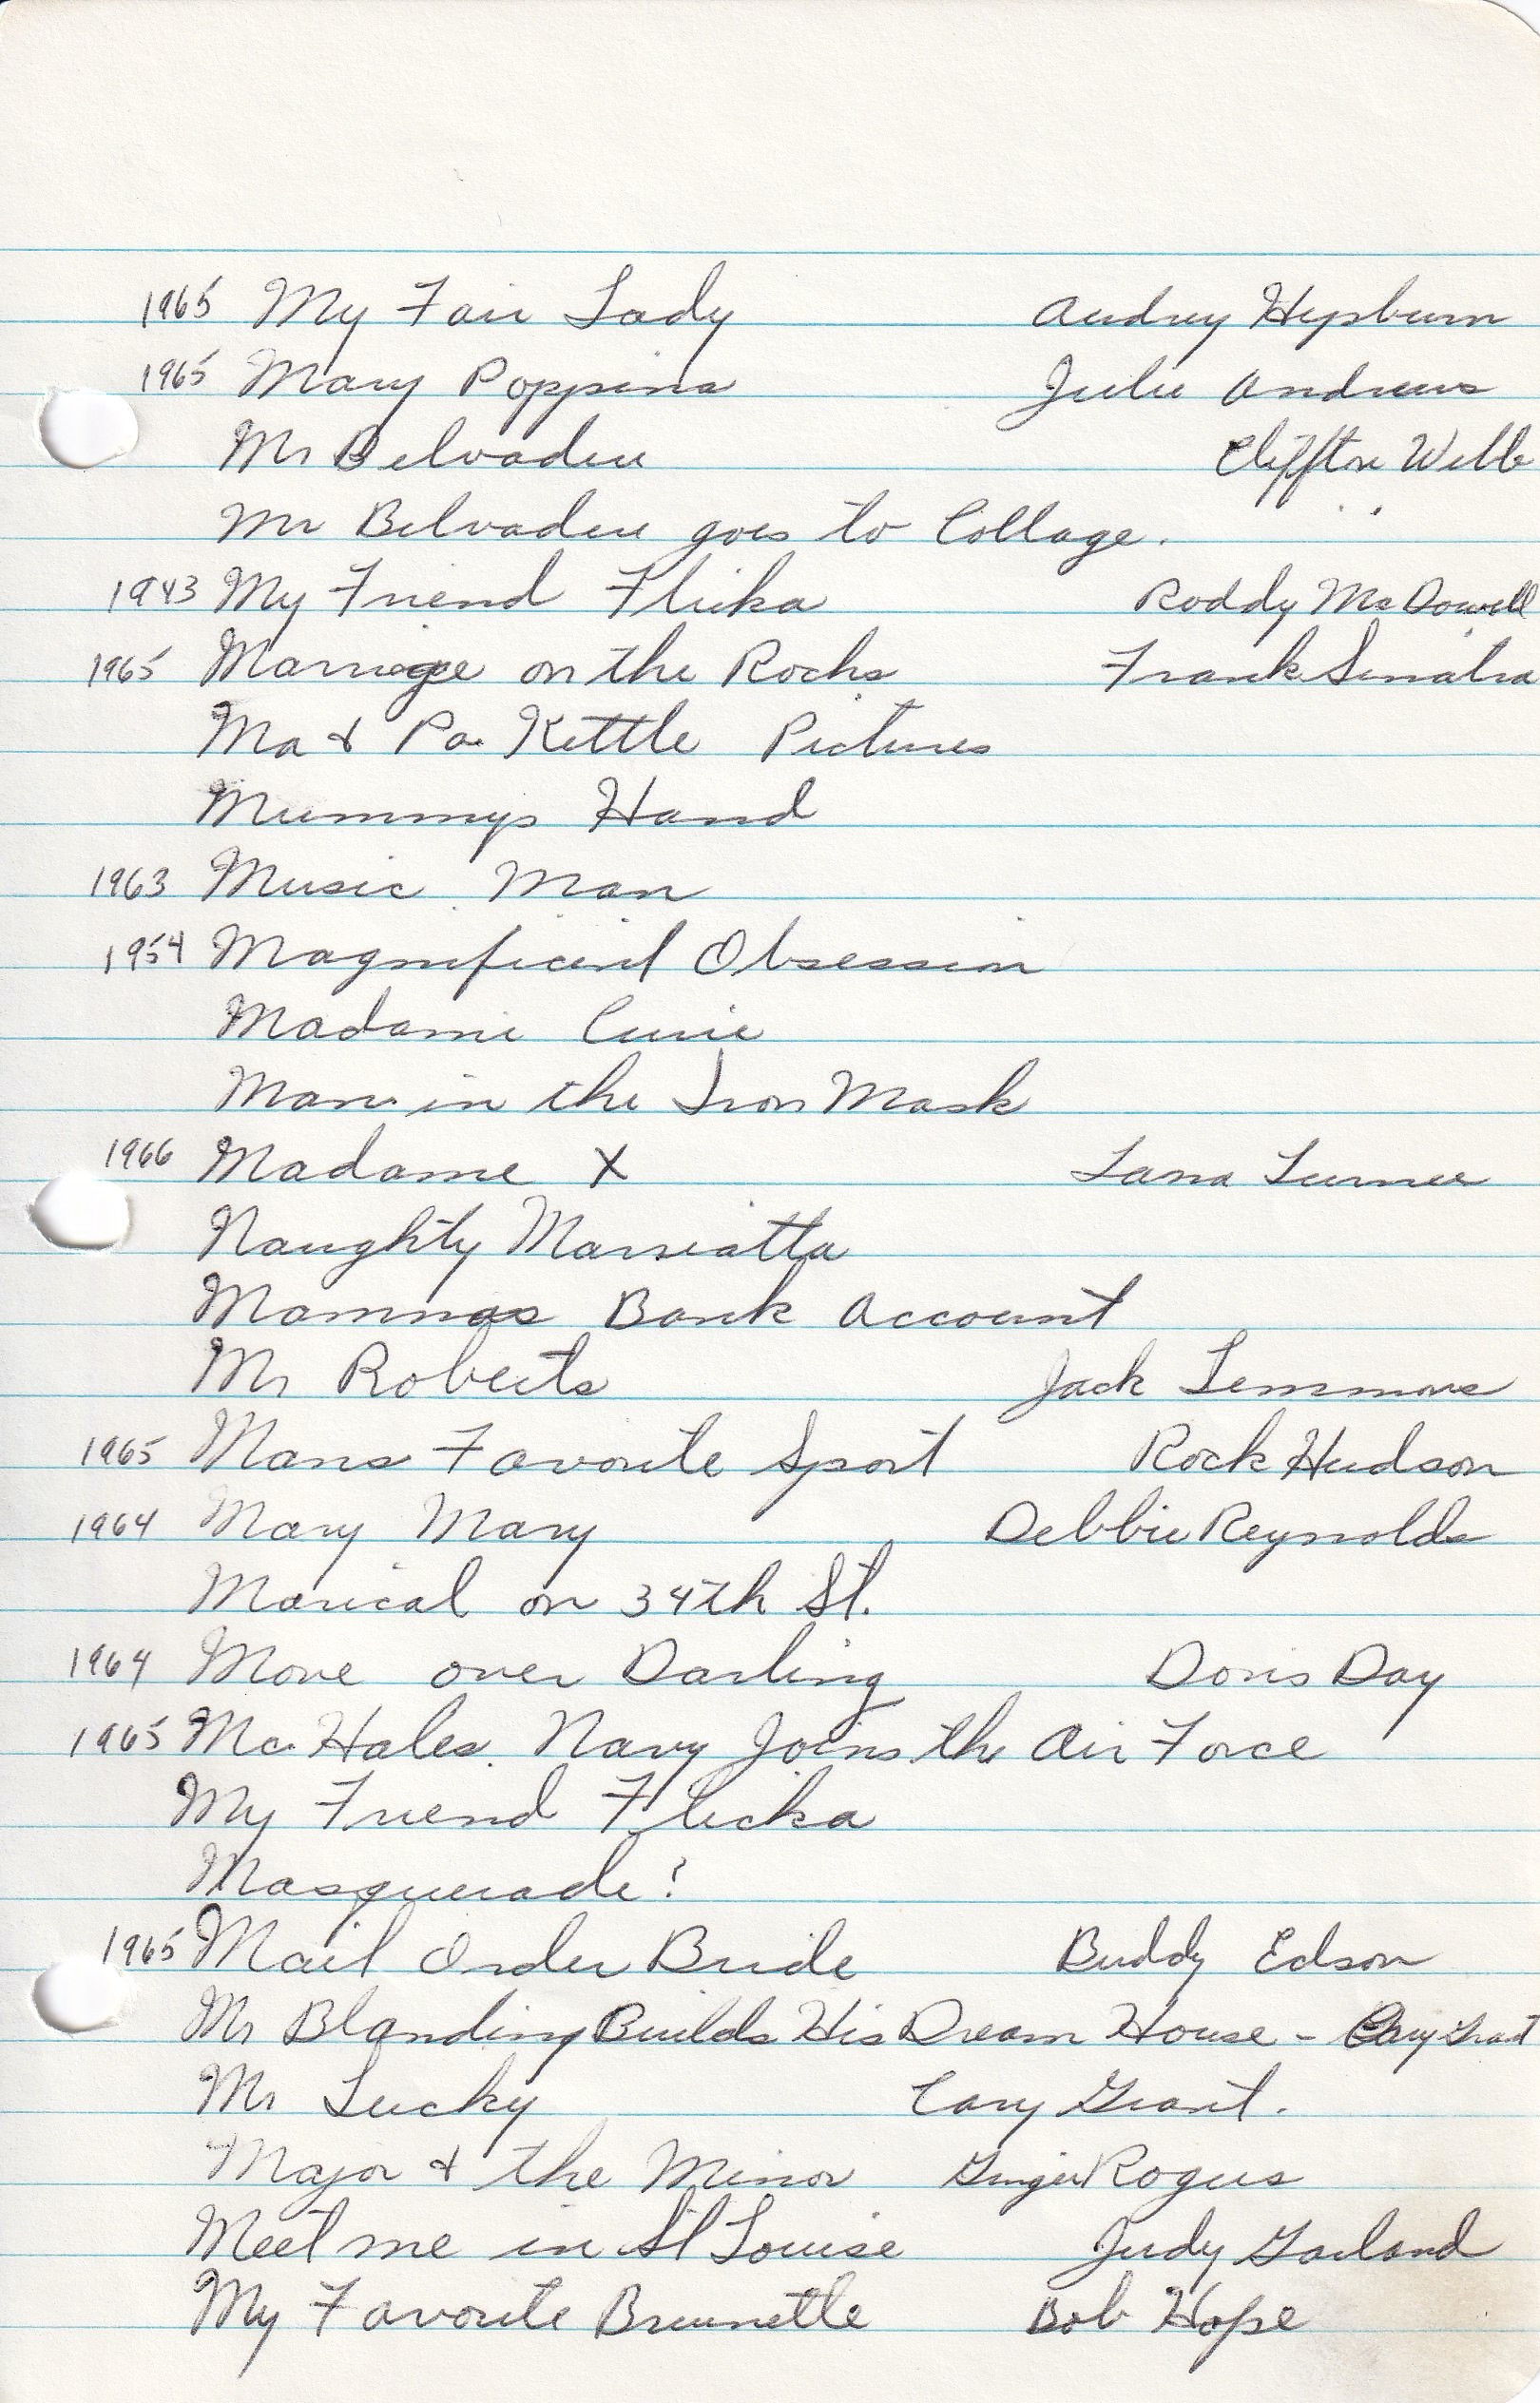 1965 My Fair Lady Audrey Hepburn
1965 Mary Poppins Julie Andrews
Mr Belvadere Cliffton Webb
Mr Belvadere goes to Collage. " 
1943 My Friend Flicka Roddy McDowell
1965 Marriage on the Rocks Frank Sinatra
Ma & Pa Kettle Pictures
Mummys Hand
1963 Music Man
1954 Magnificent Obsession
Madame Curie
Man in the Iron Mask
1966 Madame X Lana Turner
Naughty Marriatta
Mommas Bank Account
Mr Roberts Jack Lemmone
1965 Mans Favorite Sport Rock Hudson
1964 Mary Mary Debbie Reynolds
Marical on 34th St.
1964 Move over Darling Doris Day
1965 Mc Hales Navy Joins the Air Force
My Friend Flicka
Masquerade?
1965 Mail Order Bride Buddy Edson
Mr Blanding Builds His Dream House - Cary Grant
Mr Lucky Cary Grant.
Major & the Minor Ginger Rogers
Meet me in St Louise Judy Garland
My Favorite Brunette Bob Hope